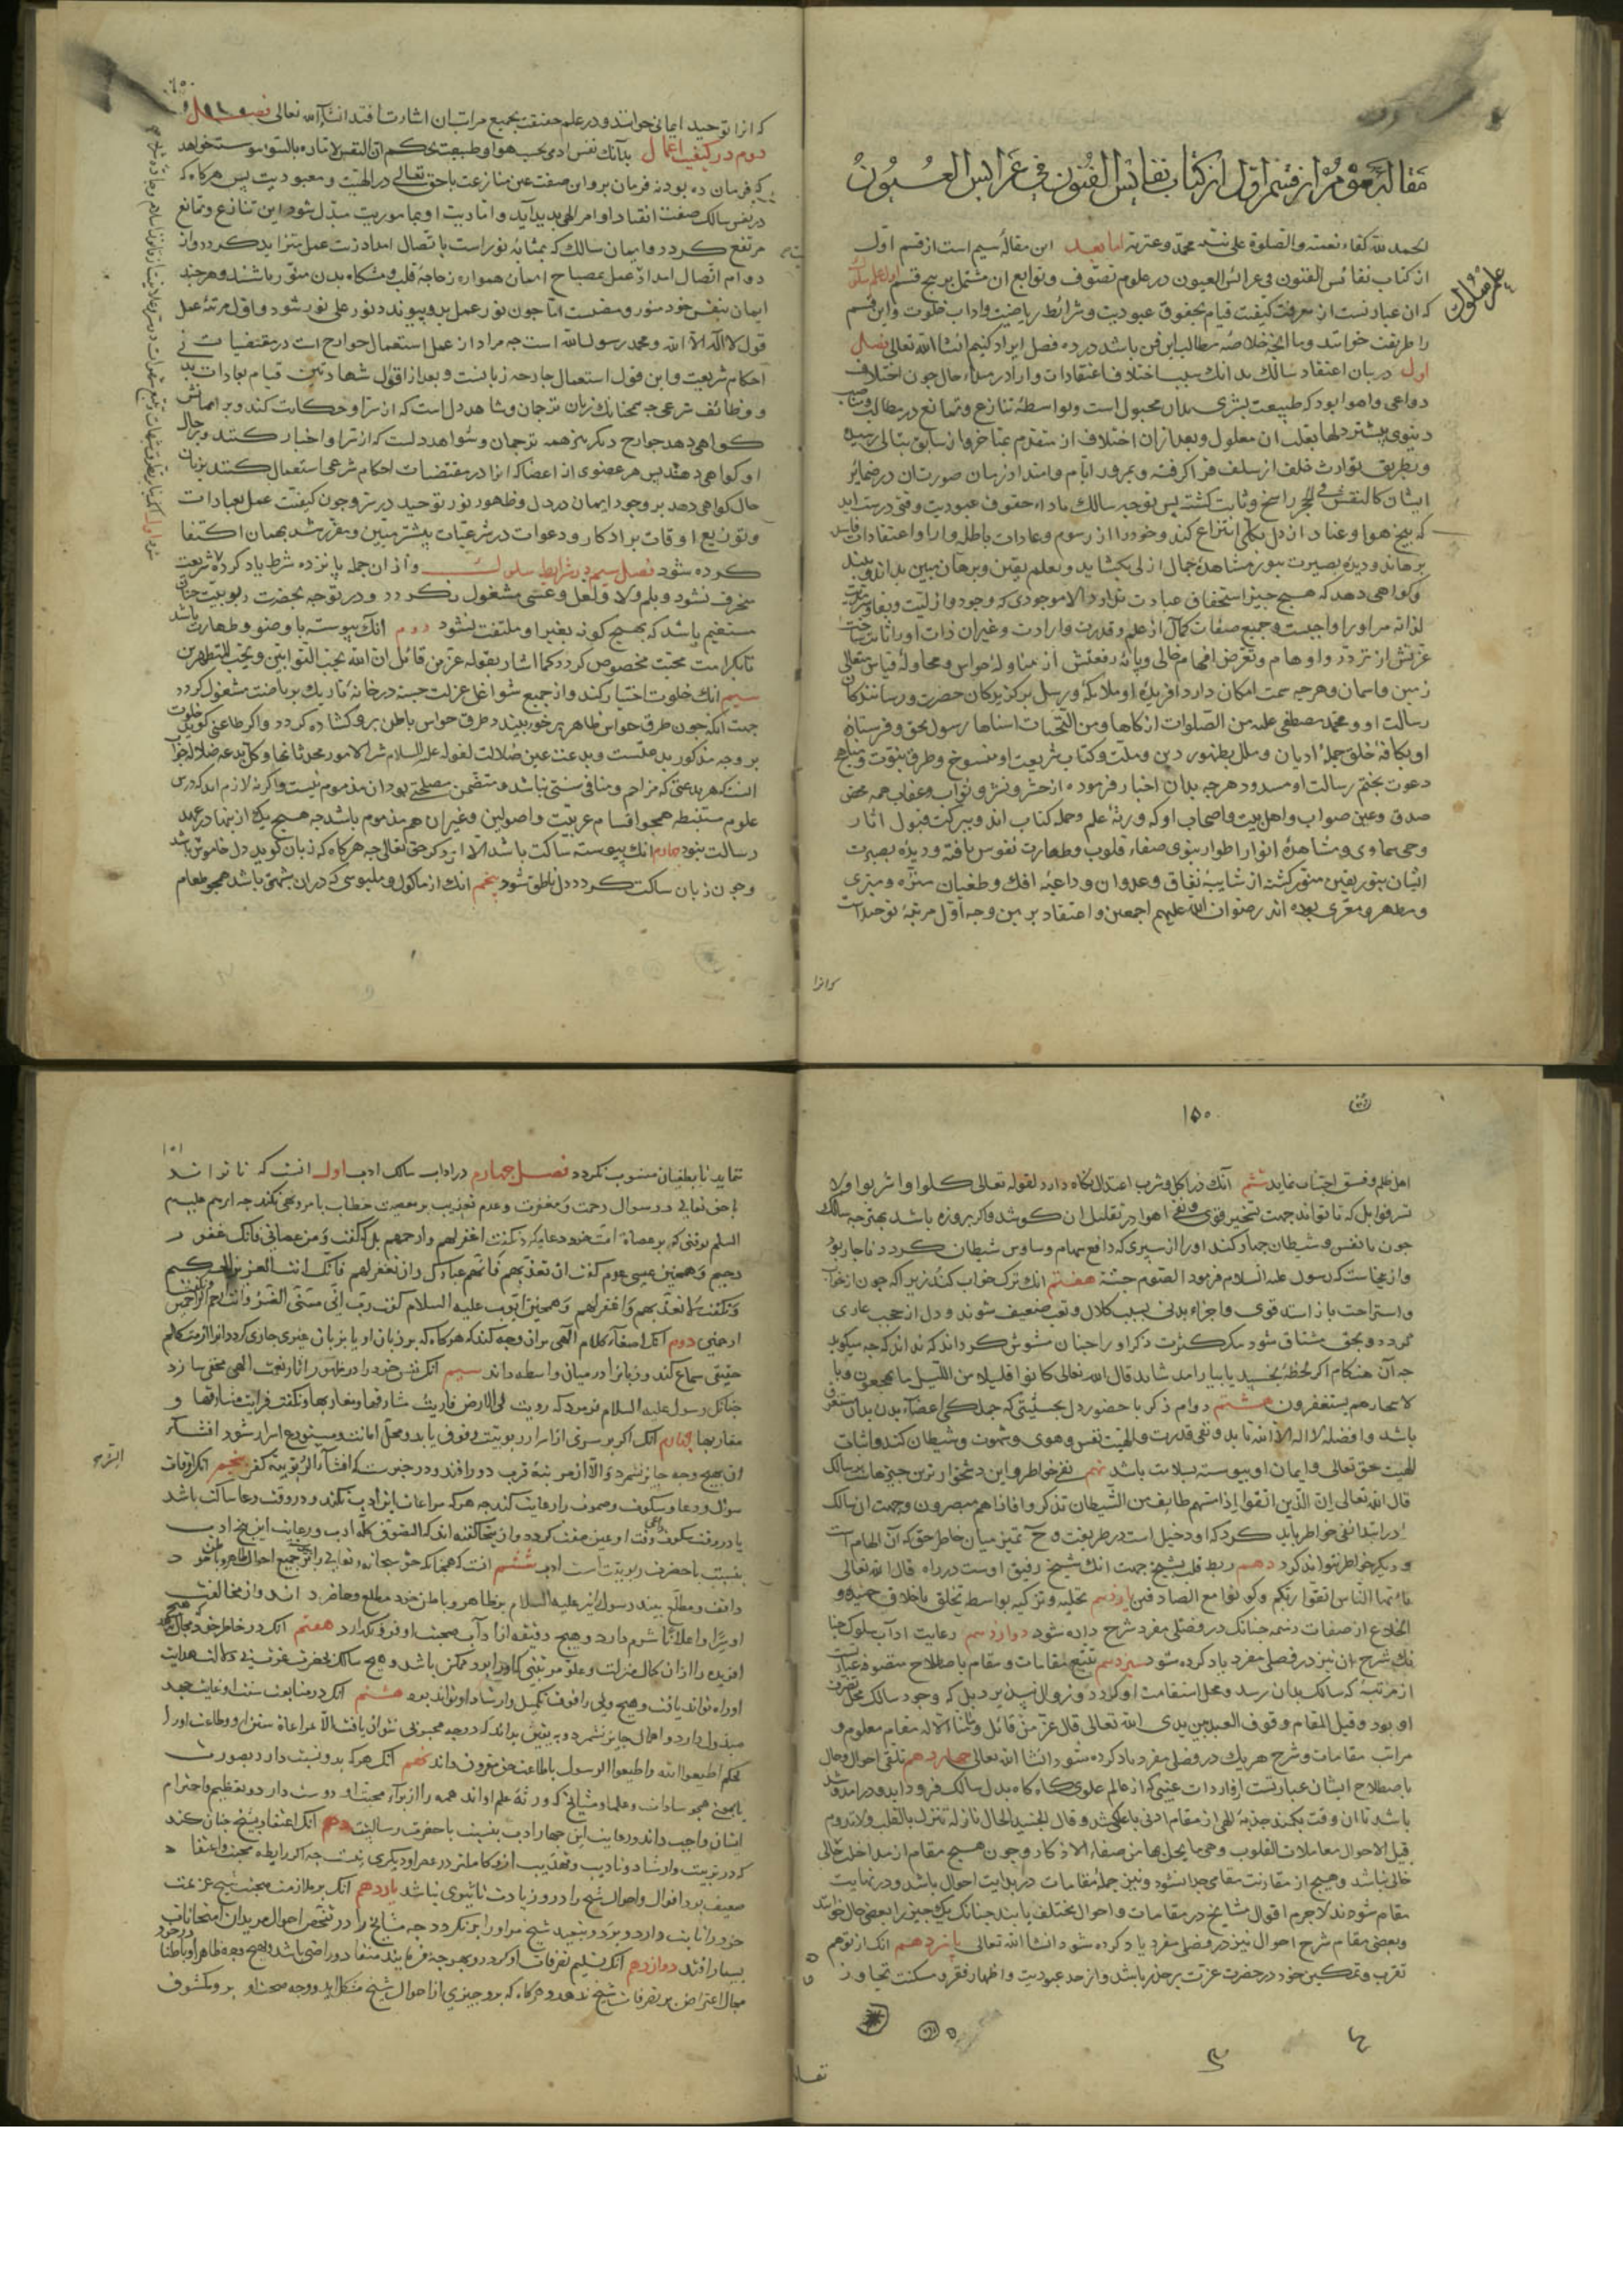 مقالهٔ سوم از قسم اول از کتاب نفائس الفنون فی عرایس العیون
علم سلوک
الحمد لله کفاء نعمته والصلوة علی نبیه محمد وعترته اما بعد این مقالهٔ سیم است از قسم اول
از کتاب نفائس الفنون فی عرائس العیون در علوم تصوف و توابع آن مشتمل بر پنج فن اول علم سلوک
که آن عبارتست از معرفت کیفیت قیام بحقوق عبودیت و شرائط ریاضیت و اداب خلوت و این قسم
را طریقت خوانند و ما انچه خلاصه مطالب این فن باشد در ده فصل ایراد کنیم انشا الله تعالی فصل
اول در بیان اعتقاد سالک بدانک سبب اختلاف اعتقادات و ارا در مبداء حال جون اختلاف
دواعی و اهوا بود که طبیعت بشری بدان مجبول است و بواسطهٔ تنازع و تمانع در مطالب
دنیوی بیشتر دلها بقلب ان معلول و بعد ازان اختلاف از متقدم بمتاخر و از سابق بتالی رسیده
و بطریق توارث خلف از سلف فرا کرفته و بمرور ایام و امتداد زمان صورت ان در ضمائر
ایشان کالنقش فی الحجر راسخ و ثابت کشته پس توجه سالک باداء حقوق عبودیت وقتی درست اید
که بیخ هوا و عناد از دل بکلی انتزاع کند و خود را از رسوم و عادات باطل و ارا و اعتقادات فاسد
برهاند و دیدهٔ بصیرت بنور مشاهدهٔ جمال ازلی بکشاید و بعلم یقین و برهان مبین بداند و ببیند
و کواهی دهد که هیچ چیز استحقاق عبادت ندارد الا موجودی که وجود و ازلیت و بقا و سرمدیت
لذاته مر او را واجبست و جمیع صفات کمال از علم و قدرت و ارادت و غیر ان ذات او را ثابت
عزتش از تردد و اوهام و تعرض افهام خالی و پایهٔ رفعتش از مناولهٔ حواس و محاولهٔ قیاس متعالی
زمین و اسمان و هرچه سمت امکان دارد افریدهٔ او ملایکه و رسل برکزیدکان حضرت و رسانندکان
رسالت او و محمد مصطفی علیه من الصلوات ازکاها و من التحیات اسناها رسول بحق و فرستادهٔ
او بکافهٔ خلق جملهٔ ادیان و ملل بظهور دین و ملت و کتاب شریعت او منسوخ و طرق نبوت و مناهج
دعوت بختم رسالت او مسدود هرجه بدان اخبار فرموده از حشر و نشر و ثواب و عقاب همه محض
صدق و عین صواب و اهل بیت و اصحاب او که ورثهٔ علم و حملهٔ کتاب اند و ببرکت قبول اثار
وحی سماوی و مشاهدهٔ انوار اطوار نبوی صفاء قلوب و طهارت نفوس یافته و دیدهٔ بصیرت
ایشان بنور یقین منور کشته از شایبهٔ نفاق و عدوان و داعیهٔ افک و طغیان منزه و مبری
و مطهر و معری بوده اند رضوان الله علیهم اجمعین و اعتقاد برین وجه اول مرتبهٔ توحید است
که انرا
که انرا توحید ایمانی خوانند و در علم حقیقت بجمیع مراتب ان اشارت افتد انشاء الله تعالی فصل
دوم در کیفیت اعمال بدانک نفس ادمی بحسب هوا و طبیعت بحکم ان النفس لامارة بالسوء پیوسته خواهد
که فرمان ده بود نه فرمان بر و ان صفت عین منازعت با حق تعالی در الهیت و معبودیت پس هرکاه که
در نفس سالک صفت انقیاد اوامر الهی پدید آید و اماریت او بماموریت مبدل شود این تنازع و تمانع
مرتفع کردد و ایمان سالک که بمثابهٔ نور است باتصال امداد زیت عمل متزاید کردد و از
دوام اتصال امداد عمل بمصباح ایمان همواره زجاجهٔ قلب و مشکاه بدن منور باشند و هرچند
ایمان بنفس خود منور و مضیست اما جون نور عمل برو پیوندد نور علی نور شود و اول مرتبهٔ عمل
قول لا اله الا الله و محمد رسول الله است جه مراد از عمل استعمال جوارح است در مقتضیات
احکام شریعت و این قول استعمال جارحه زبانست و بعد از اقوال شهادتین قیام بعبادات بدنی
و وظائف شرعی جه همچنانک زبان ترجمان و شاهد دل است که از سر او حکایت کند و بر ایمانش
کواهی دهد جوارح دیکر نیز همه ترجمان و شواهد دلست که از سر او اخبار کنند و بر حال
او کواهی دهند پس هر عضوی از اعضا که انرا در مقتضیات احکام شرعی استعمال کنند بزبان
حال کواهی دهد بر وجود ایمان در دل و ظهور نور توحید در سر و جون کیفیت عمل بعبادات
و توزیع اوقات بر اذکار و دعوات در شرعیات بیشتر مبین و مقرر شد بهمان اکتفا
کرده شود فصل سیم در شرایط سلوک و از ان جمله پانزده شرط یاد کرده
منحرف نشود و بلم و لا و لعل و عسی مشغول نکردد و در توجه بحضرت ربوبیت
مستقیم باشد که بهیچ کونه بغیر او ملتفت نشود دوم انک پیوسته با وضو و طهارت باشد
تا بکرامت محبت مخصوص کردد کما اشار بقوله عز من قائل ان الله یحب التوابین و یحب المتطهرین
سیم انک خلوت اختیار کند و از جمیع شواغل عزلت جسته در خانهٔ تاریک بریاضت مشغول کردد
جهت انکه جون طرق حواس ظاهر بر خود ببندد طرق حواس باطن برو کشاده کردد و اکر طاعنی کوید که خلوت
بر وجه مذکور بدعتست و بدعت عین ضلالت لقوله علیه السلام شر الامور محدثاتها و کل بدعه ضلاله جواب
انست که هر بدعتی که مزاحم و منافی سنتی نباشد و متضمن مصلحتی بود ان مذموم نیست و اکر نه لازم اید که درس
علوم مستنبطه همچو اقسام عربیت و اصولین و غیر ان هم مذموم باشد جه هیچ یک از اینها در عهد
رسالت نبود چهارم انک پیوسته ساکت باشد الا از ذکر حق تعالی جه هرکاه که زبان کوید دل خاموش باشد
و جون زبان ساکت کردد دل ناطق شود پنجم انک از ماکول و ملبوسی که در ان شبهتی باشد همچو طعام
۱۵۰
اهل ظلم و فسق اجتناب نماید ششم آنک در اکل و شرب اعتدال نکاه دارد لقوله تعالی کلوا و اشربوا و لا
تسرفوا بل که تا تواند جهت تسخیر قوی و نفی اهوا در تقلیل ان کوشد و اکر بروزه باشد بهتر جه سالک
جون با نفس و شیطان جهاد کند او را از سپری که دافع سهام وساوس شیطان کردد ناچار بود
و از ینجاست که رسول علیه السلام فرمود الصوم جنة هفتم انک ترک خواب کند زیرا که جون از خواب
و استراحت باز استد قوی و اجزاء بدنی بسبب کلال و تعب ضعیف شوند و دل از حجب عاری
کردد و بحق مشتاق شود بلکه کثرت ذکر او را جنان مشوش کرداند که نداند که جه میکوید
جه آن هنکام اکر لحظهٔ بخسپد یا بیارامد شاید قال الله تعالی کانوا قلیلا من اللیل ما یهجعون و با
لاسحار هم یستغفرون هشتم دوام ذکر با حضور دل بحیثیتی که جملکی اعضاء بدن بدان مستغرق
باشد و افضله لا اله الا الله تا بدو نفی قدرت و الهیت نفس و هوی و شهوت و شیطان کند و اثبات
الهیت حق تعالی و ایمان او پیوسته بسلامت باشد نهم نفی خواطر و این دشخوارترین چیزهاست بر سالک
قال الله تعالی ان الذین اتقوا اذا مسهم طایف من الشیطان تذکروا فاذا هم مبصرون و جهت ان سالک
در ابتدا نفی خواطر باید کرد که او دخیل است در طریقت و ح تمییز میان خاطر حق که آن الهام است
و دیکر خواطر نتواند کرد دهم ربط قلب بشیخ جهت انک شیخ رفیق اوست در راه قال الله تعالی
یا ایها الناس اتقوا ربکم و کونوا مع الصادقین یازدهم تحلیه و تزکیه بواسطه تخلق باخلاق حمیده و
انخلاع از صفات ذمیمه جنانک در فصلی مفرد شرح داده شود دوازدهم رعایت اداب سلوک جنا
نک شرح ان نیز در فصلی مفرد یاد کرده شود سیزدهم تتبع مقامات و مقام باصطلاح متصوفه عبارتست
از مرتبهٔ که سالک بدان رسد و محل استقامت او کردد و زوال نپذیرد بل که وجود سالک محل تصرف
او بود و قیل المقام وقوف العبد بین یدی الله تعالی قال عز من قائل و ما منا الا له مقام معلوم و
مراتب مقامات و شرح هریک در فصلی مفرد یاد کرده شود انشا الله تعالی چهاردهم تلقی احوال و حال
باصطلاح ایشان عبارتست از واردات غیبی که از عالم علوی کاه کاه بدل سالک فرود اید و در امد و شد
باشد تا ان وقت بکمند جذبهٔ الهی از مقام ادنی باعلی کشد و قال الجنید الحال نازلة تنزل بالقلب و لا تدوم
قیل الاحوال معاملات القلوب و هی ما یحل بها من صفاء الاذکار و جون هیچ مقام از مداخل حالی
خالی نباشد و هیچ از مقارنت مقامی جدا نشود و نیز جملهٔ مقامات در بدایت احوال باشد و در نهایت
مقام شوند لاجرم اقوال مشایخ در مقامات و احوال مختلف یابند جنانک یک چیز را بعضی حال خوانند
و بعضی مقام شرح احوال نیز در فصلی مفرد یاد کرده شود انشا الله تعالی پانزدهم انک از توهم
تقرب و تمکین خود در حضرت عزت بر حذر باشد و از حد عبودیت و اظهار فقر و مسکنت تجاوز
۱۵۱
ننماید تا بطغیان منسوب نکردد فصل چهارم در اداب سالک ادب اول انست که تا تواند
با حق تعالی در سوال رحمت و مغفرت و عدم تعذیب بر معصیت خطاب بامر و نهی نکند جه ابرهیم علیه
السلم بوقتی که بر عصاة امت خود دعا میکرد نکفت اغفر لهم و ارحمهم بل که کفت و من عصانی فانک غفور
رحیم و همچنین عیسی علیه السلام کفت ان تعذبهم فانهم عبادک و ان تغفر لهم فانک انت العزیز الحکیم
و نکفت لا تعذبهم و اغفر لهم و همچنین ایوب علیه السلام کفت رب انی مسنی الضر و انت ارحم الراحمین و نکفت
ارحمنی دوم انک اصغاء کلام الهی بران وجه کند که هرکاه که بر زبان او یا بزبان غیری جاری کردد انرا از متکلم
حقیقی سماع کند و زبانرا در میان واسطه داند سیم انک نفس خود را در ظهور اثار نعمت الهی مخفی سازد
جنانک رسول علیه السلام فرمود که زویت لی الارض فاریت مشارقها و مغاربها و نکفت فرایت مشارقها و
مغاربها چهارم انک اکر بر سری از اسرار ربوبیت وقوف یابد و محل امانت و مستودع اسرار شود افشاء
ان بهیچ وجه جایز نشمرد و الا از مرتبهٔ قرب دور افتد و در خبرست که افشاء سر الربوبیة کفر پنجم انک اوقات
سوال و دعا و سکوت و صموت را رعایت کند جه هرکه مراعات این ادب نکند و در وقت دعا ساکت باشد
یا در وقت سکوت داعی وقت او عین مقت کردد و از ینجا کفته اند که التصوف کله ادب و رعایت این پنج ادب
بنسبت با حضرت ربوبیت است ادب ششم انست که همچنانکه حق سبحانه و تعالی را بر جمیع احوال ظاهر و باطن خود
واقف و مطلع بیند رسول را نیز علیه السلام بر ظاهر و باطن خود مطلع و حاضر داند و از مخالفت
او سرا و اعلانا شرم دارد و هیچ دقیقه از اداب صحبت او فرو نکذارد هفتم انک در خاطر خود مجال
افریده را از ان کمال منزلت و علو مرتبتی که او را بود ممکن باشد و هیچ سالک بحضرت عزت بی دلالت هدایت
او راه تواند یافت و هیچ ولی را قوت تکمیل و ارشاد او تواند بود هشتم انک در متابعت سنت او غایت جهد
مبذول دارد و اهمال جایز نشمرد و به یقین بداند که درجه محبوبی نتوان یافت الا بمراعاة سنن او و طاعت او را
بحکم اطیعوا الله و اطیعوا الرسول با طاعت حق مقرون داند نهم انک هرکه بدو نسبت دارد بصورت
یا بمعنی همچو سادات و علما و مشایخ که ورثهٔ علم او اند همه را از برای محبت او دوست دارد و تعظیم و احترام
ایشان واجب داند و رعایت این چهار ادب بنسبت با حضرت رسالتست دهم انک اعتقاد بشیخ جنان کند
که در تربیت و ارشاد و تادیب و تهذیب از و کاملتر در عصر او دیکری نیست جه اکر رابطه محبت و اعتقاد
ضعیف بود اقوال و احوال شیخ را در و زیادت تاثیری نباشد یازدهم انک بر ملازمت صحبت شیخ عزیمت
خود را ثابت دارد و برد و تبعید شیخ مر او را برنکردد جه مشایخ را در تفحص احوال مریدان امتحانات
بسیار افتد دوازدهم انک تسلیم تصرفات او کردد و بهرچه فرماید منقاد و راضی باشد و بهیچ وجه ظاهرا و باطنا
مجال اعتراض بر تصرفات شیخ ندهد و هرکاه که برو چیزی از احوال شیخ مشکل اید و وجه صحت او برو مکشوف